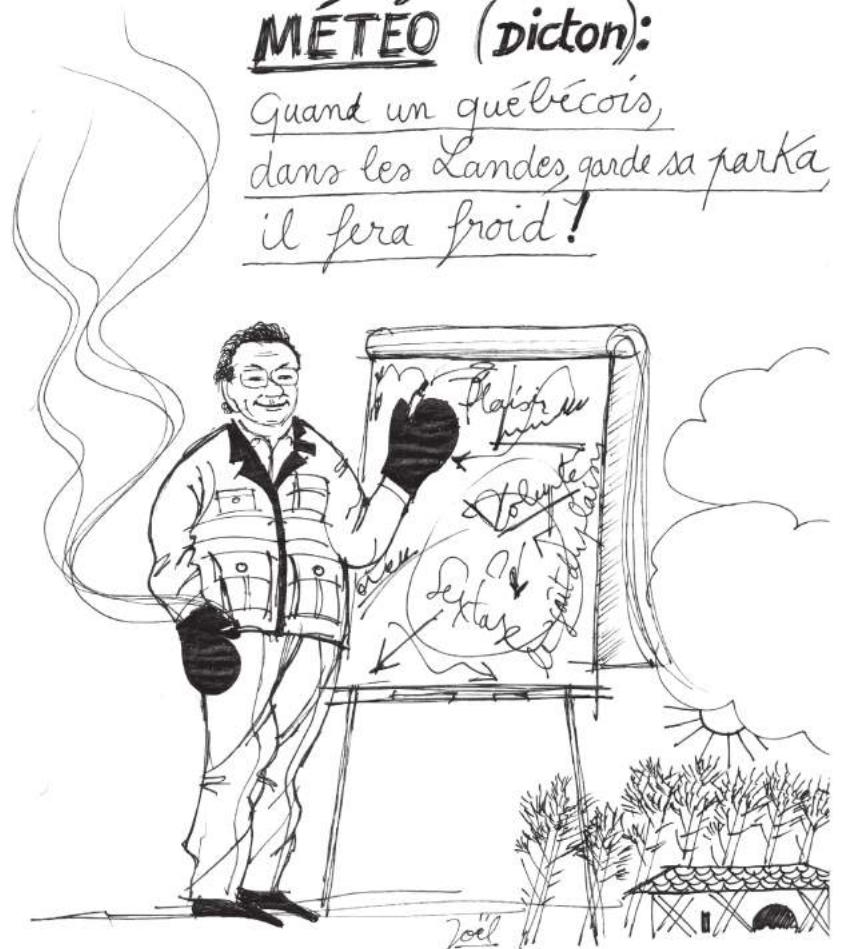 MÉTÉO (Dicton):
Quand un québécois,
dans les Landes, garde sa parka,
il fera froid!
Plaisir
Volupté
Dieu
l'extase
Joël